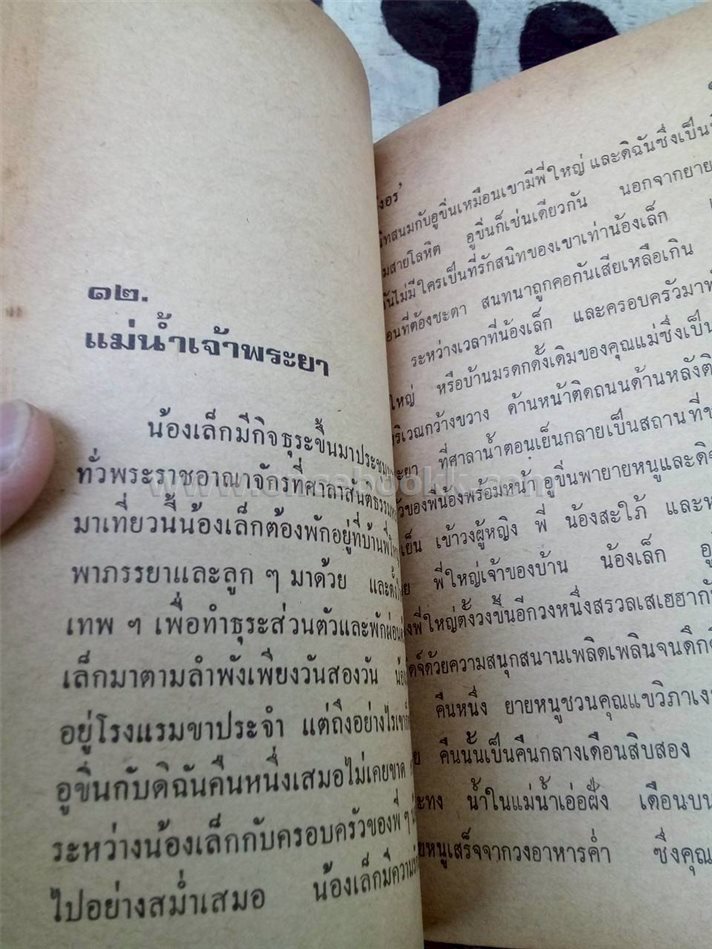 ๑๒.
แม่น้ำเจ้าพระยา
น้องเล็กมีกิจธุระขึ้นมาประชุม
ทั่วพระราชอาณาจักรที่ศาลาสันติธรรม
มาเที่ยวนี้น้องเล็กต้องพักอยู่ที่บ้านพี่ใหญ่
พาภรรยาและลูก ๆ มาด้วย และตั้งใจ
เทพ ฯ เพื่อทำธุระส่วนตัวและพักผ่อน
เล็กมาตามลำพังเพียงวันสองวัน
อยู่โรงแรมขาประจำ แต่ถึงอย่างไรเขาก็
อูขิ่นกับดิฉันคืนหนึ่งเสมอไม่เคยขาด
ระหว่างน้องเล็กกับครอบครัวของพี่ ๆ
ไปอย่างสม่ำเสมอ น้องเล็กมีความ
งอร'
ทสนมกับอูขิ่นเหมือนเขามีพี่ใหญ่ และดิฉันซึ่งเป็น
มสายโลหิต อูขิ่นก็เช่นเดียวกัน นอกจากยาย
ันไม่มีใครเป็นที่รักสนิทของเขาเท่าน้องเล็ก
อนที่ต้องชะตา สนทนาถูกคอกันเสียเหลือเกิน
ระหว่างเวลาที่น้องเล็ก และครอบครัวมาพัก
ใหญ่ หรือบ้านมรดกดั้งเดิมของคุณแม่ซึ่งเป็น
ริเวณกว้างขวาง ด้านหน้าติดถนนด้านหลังติ
ะยา ที่ศาลาน้ำตอนเย็นกลายเป็นสถานที่
ัวของพี่น้องพร้อมหน้า อูขิ่นพายายหนูและดิ
เย็น เข้าวงผู้หญิง พี่ น้องสะใภ้ และ
พี่ใหญ่เจ้าของบ้าน น้องเล็ก
งพี่ใหญ่ตั้งวงขึ้นอีกวงหนึ่งสรวลเสเฮฮากั
ด์จ์ด้วยความสนุกสนานเพลิดเพลินจนดึก
คืนหนึ่ง ยายหนูชวนคุณแขวิภาเ
คืนนั้นเป็นคืนกลางเดือนสิบสอง
ะทง น้ำในแม่น้ำเอ่อฝั่ง เดือนบน
ยหนูเสร็จจากวงอาหารค่ำ ซึ่งคุณ